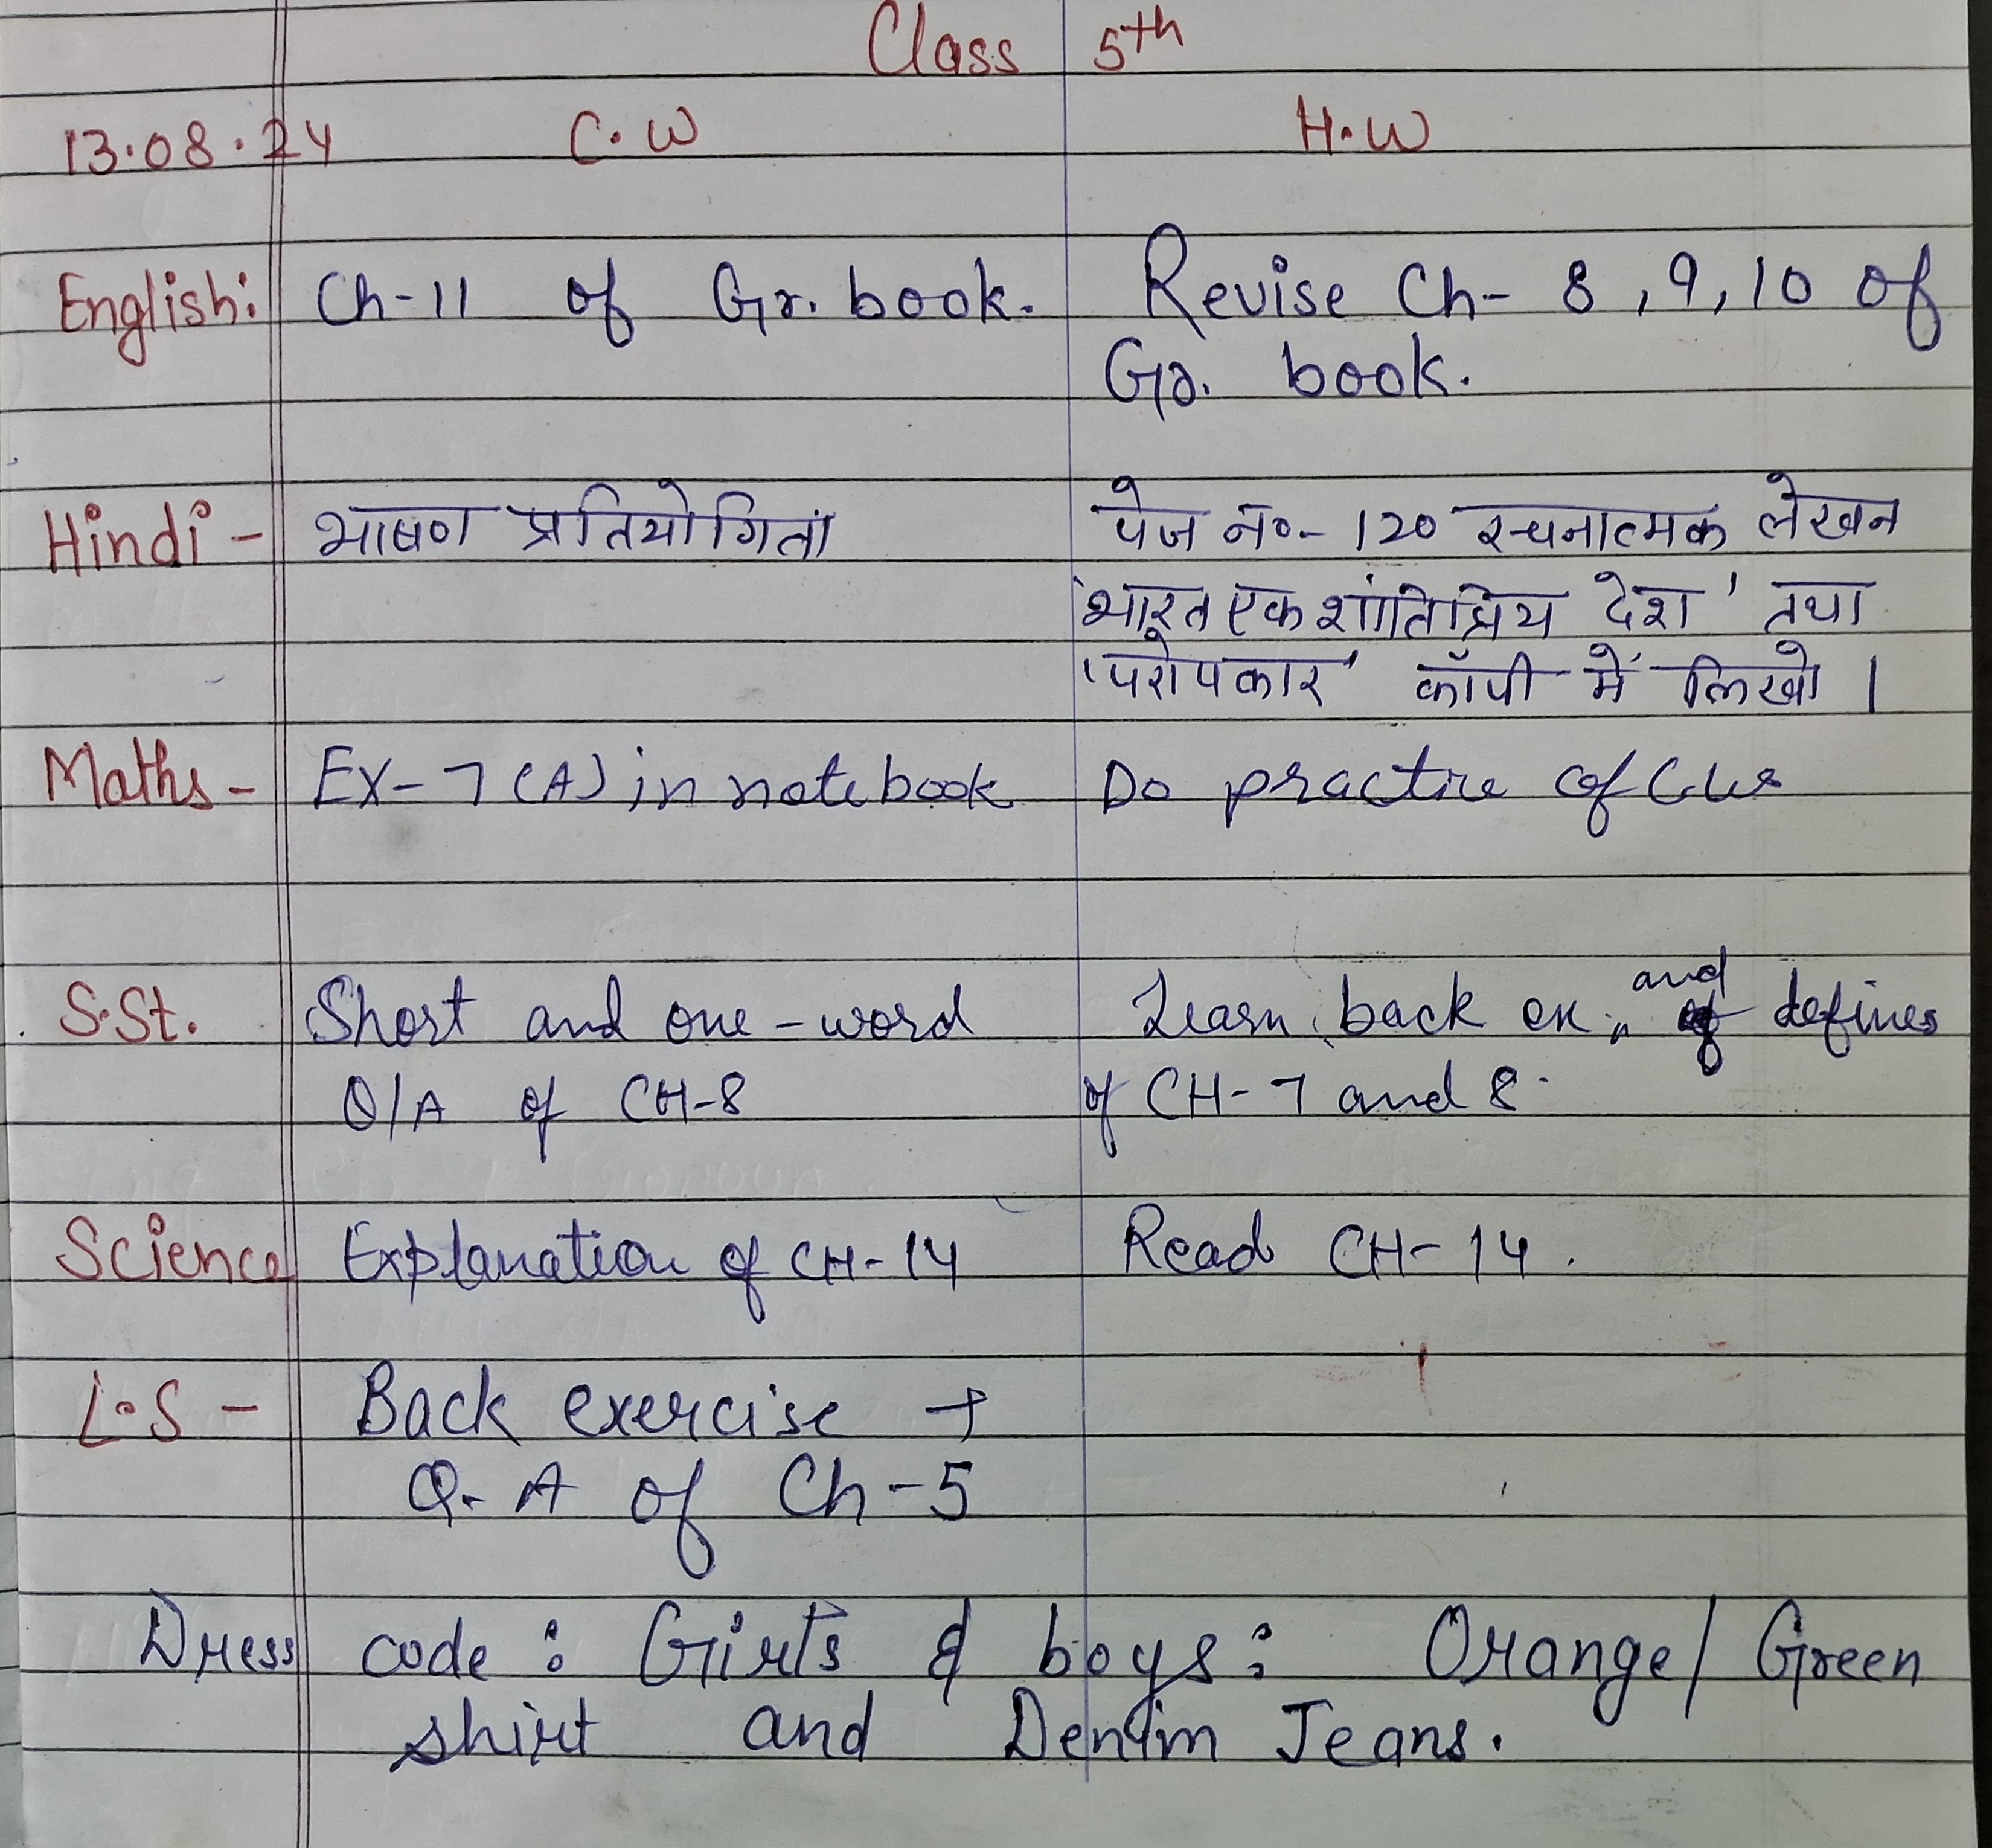 Class 5th
13.08.24 C.W H.W
English: Ch-11 of Gr. book. Revise Ch- 8, 9, 10 of
Gr. book.
Hindi - भाषण प्रतियोगिता पेज नं०- 120 रचनात्मक लेखन
'भारत एक शांतिप्रिय देश' तथा
'परोपकार' कॉपी में लिखो ।
Maths - EX-7 (A) in notebook Do practice of
S.St. Short and one-word Learn back ex. and defines
Q/A of CH-8 of CH-7 and 8.
Science Explanation of CH-14 Read CH-14.
L.S - Back exercise →
Q-A of Ch-5
Dress code : Girls & boys : Orange/Green
shirt and Denim Jeans.